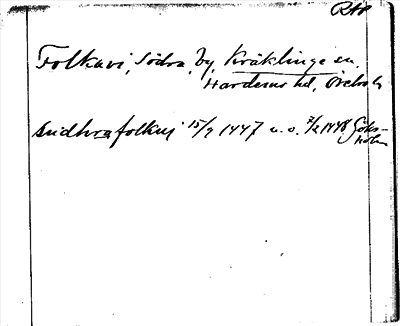 RAP
Folkavi, Södra, by, Kräklinge sn,
Hardemo hd, Örebro l.
sudhra folkavi 15/9 1447 u. o. 7/2 1448 Göks-
holm